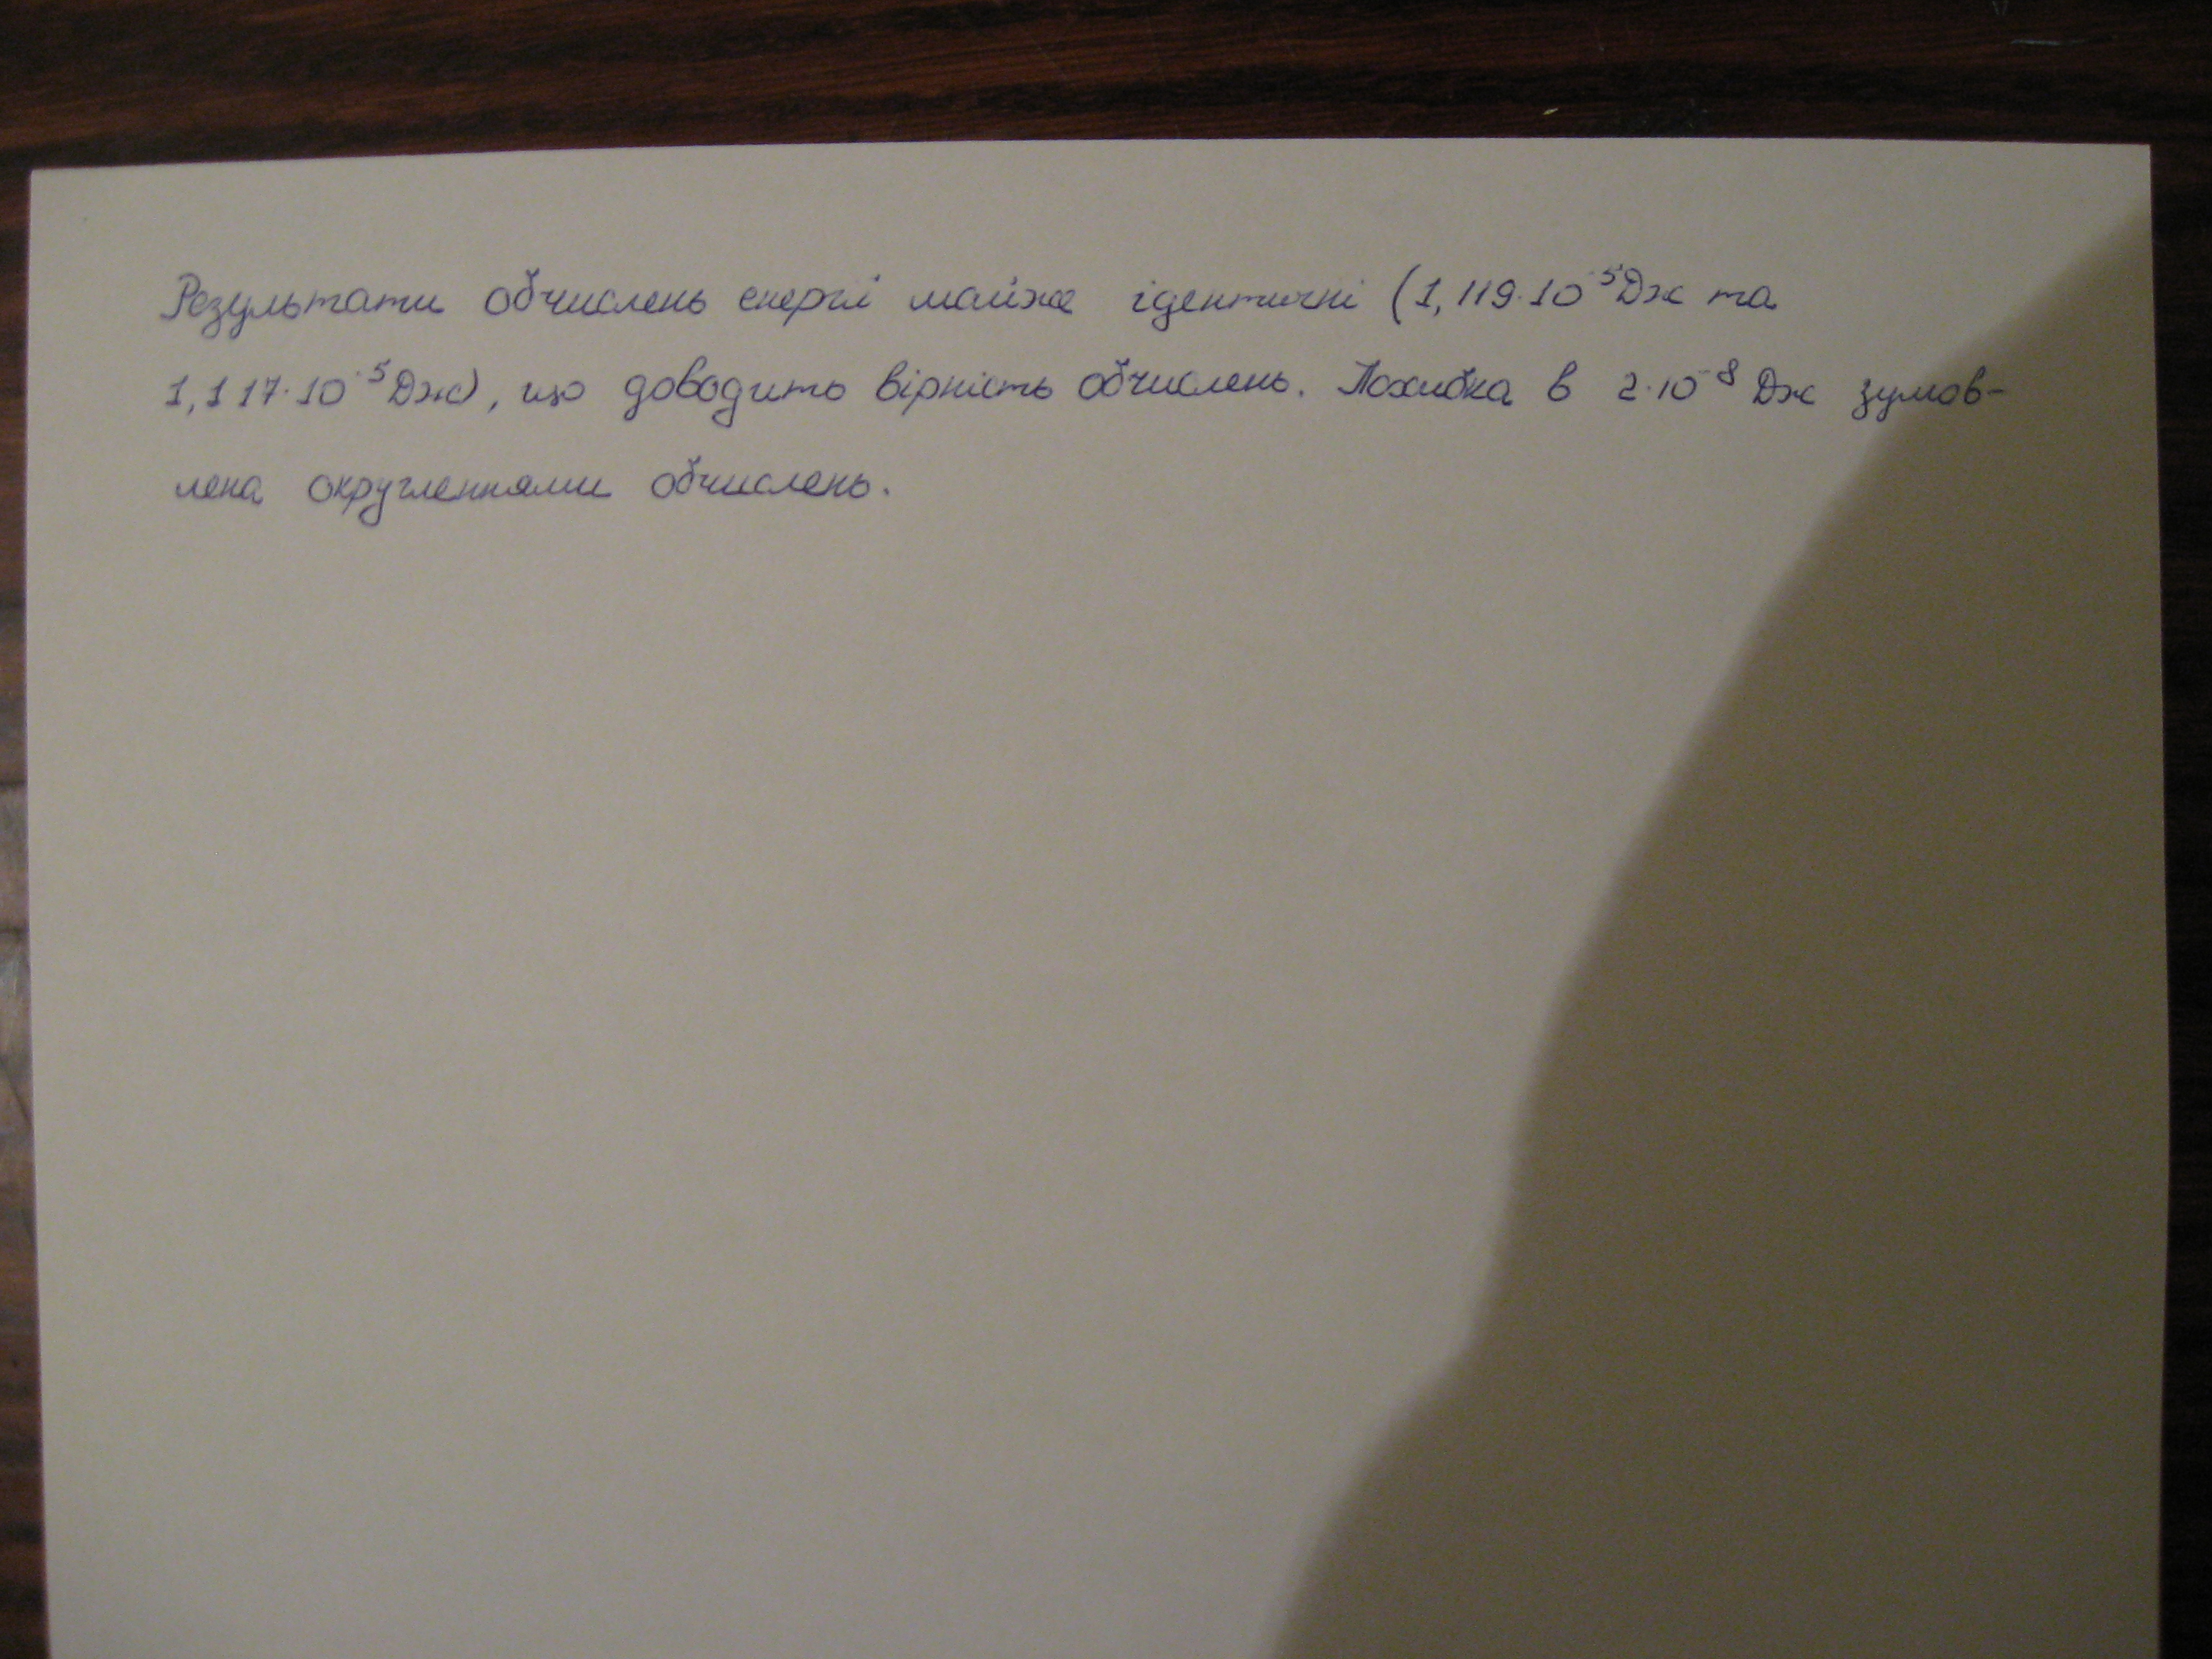 Результати обчислень енергії майже ідентичні (1,119·10⁻⁵Дж та
1,117·10⁻⁵Дж), що доводить вірність обчислень. Похибка в 2·10⁻⁸ Дж зумов-
лена округленнями обчислень.